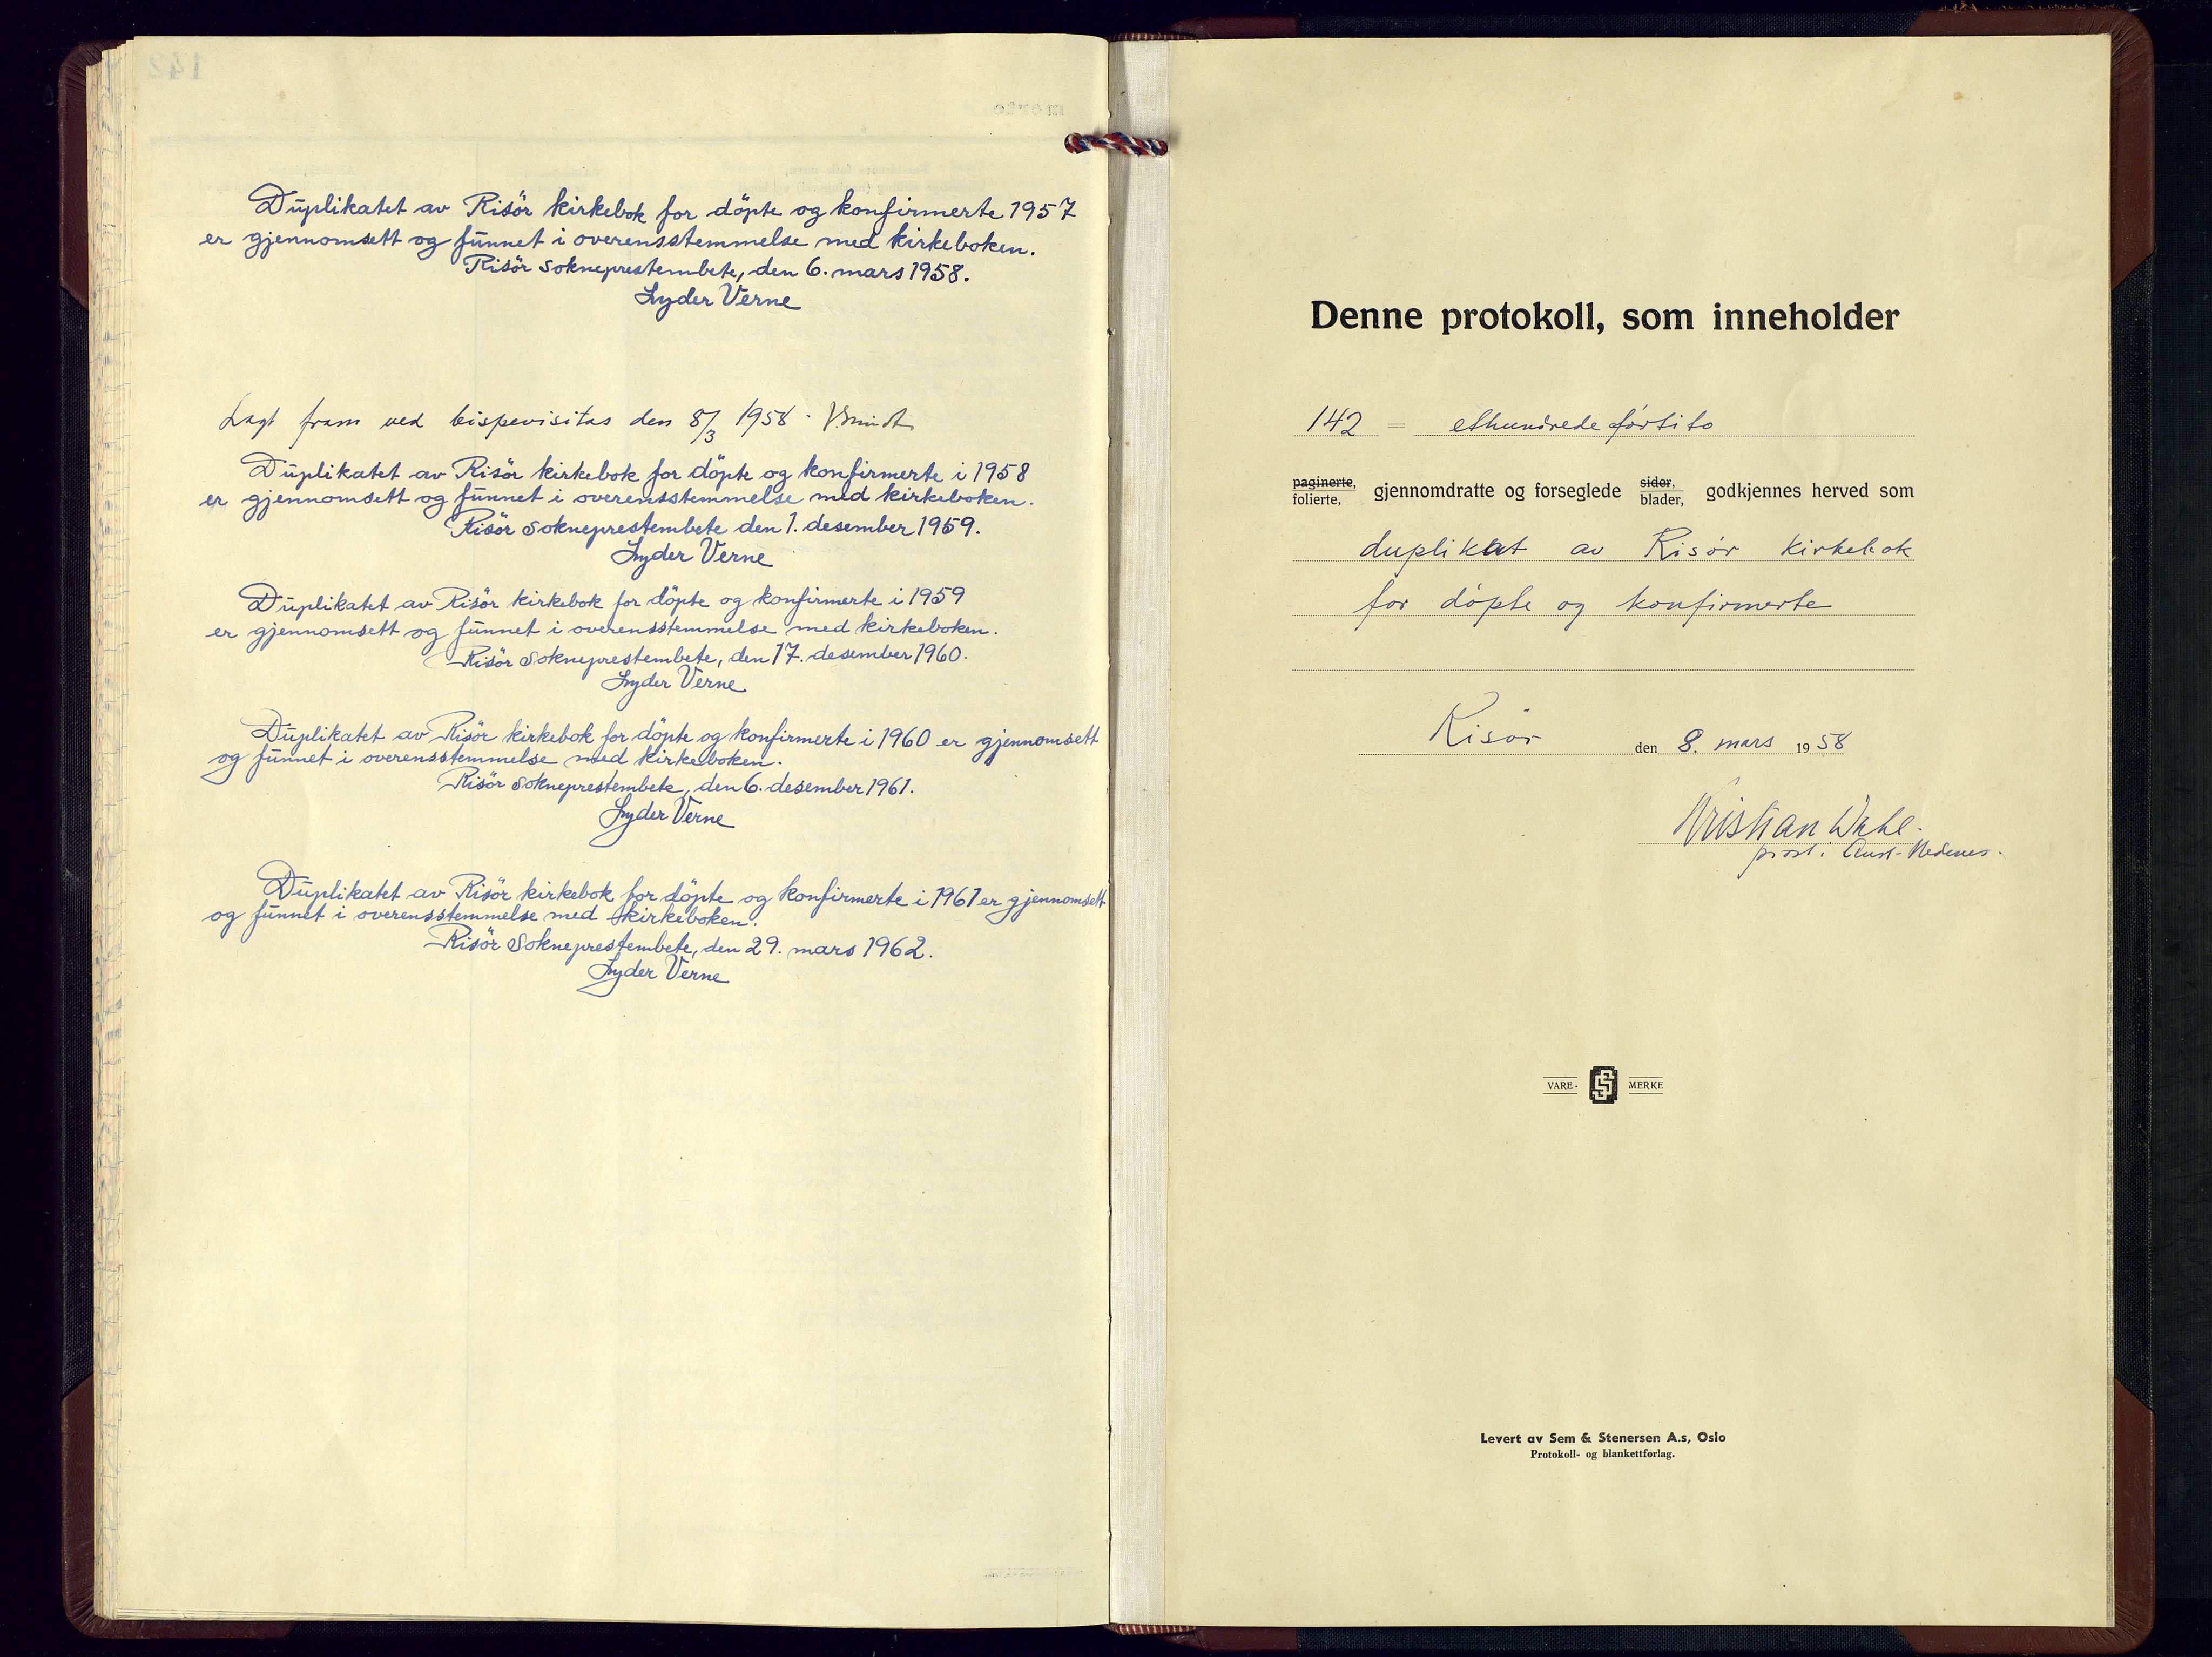 Duplikatet av Risör kirkebok for döpte og konfirmerte 1957
er gjennomsett og funnet i overensstemmelse med kirkeboken.
Risör sokneprestembete, den 6. mars 1958.
Lyder Verne
Lagt fram ved bispevisitas den 8/3 1958.
Duplikatet av Risör kirkebok for döpte og konfirmerte i 1958
er gjennomsett og funnet i overensstemmelse med kirkeboken.
Risör sokneprestembete den 1. desember 1959.
Lyder Verne
Duplikatet av Risör kirkebok for döpte og konfirmerte i 1959
er gjennomsett og funnet i overensstemmelse med kirkeboken.
Risör sokneprestembete, den 17. desember 1960.
Lyder Verne
Duplikatet av Risör kirkebok for döpte og konfirmerte i 1960 er gjennomsett
og funnet i overensstemmelse med kirkeboken.
Risör sokneprestembete, den 6. desember 1961.
Lyder Verne
Duplikatet av Risör kirkebok for döpte og konfirmerte i 1961 er gjennomsett
og funnet i overensstemmelse med kirkeboken.
Risör sokneprestembete, den 29. mars 1962.
Lyder Verne
Denne protokoll, som inneholder
142 = ethundrede førtito
paginerte, folierte, gjennomdratte og forseglede sider, blader, godkjennes herved som
duplikat av Risør kirkebok
for døpte og konfirmerte
Risør den 8. mars 1958
Kristian Dahl.
prost i Aust-Nedenes.
VARE- SS MERKE
Levert av Sem & Stenersen A.s, Oslo
Protokoll- og blankettforlag.